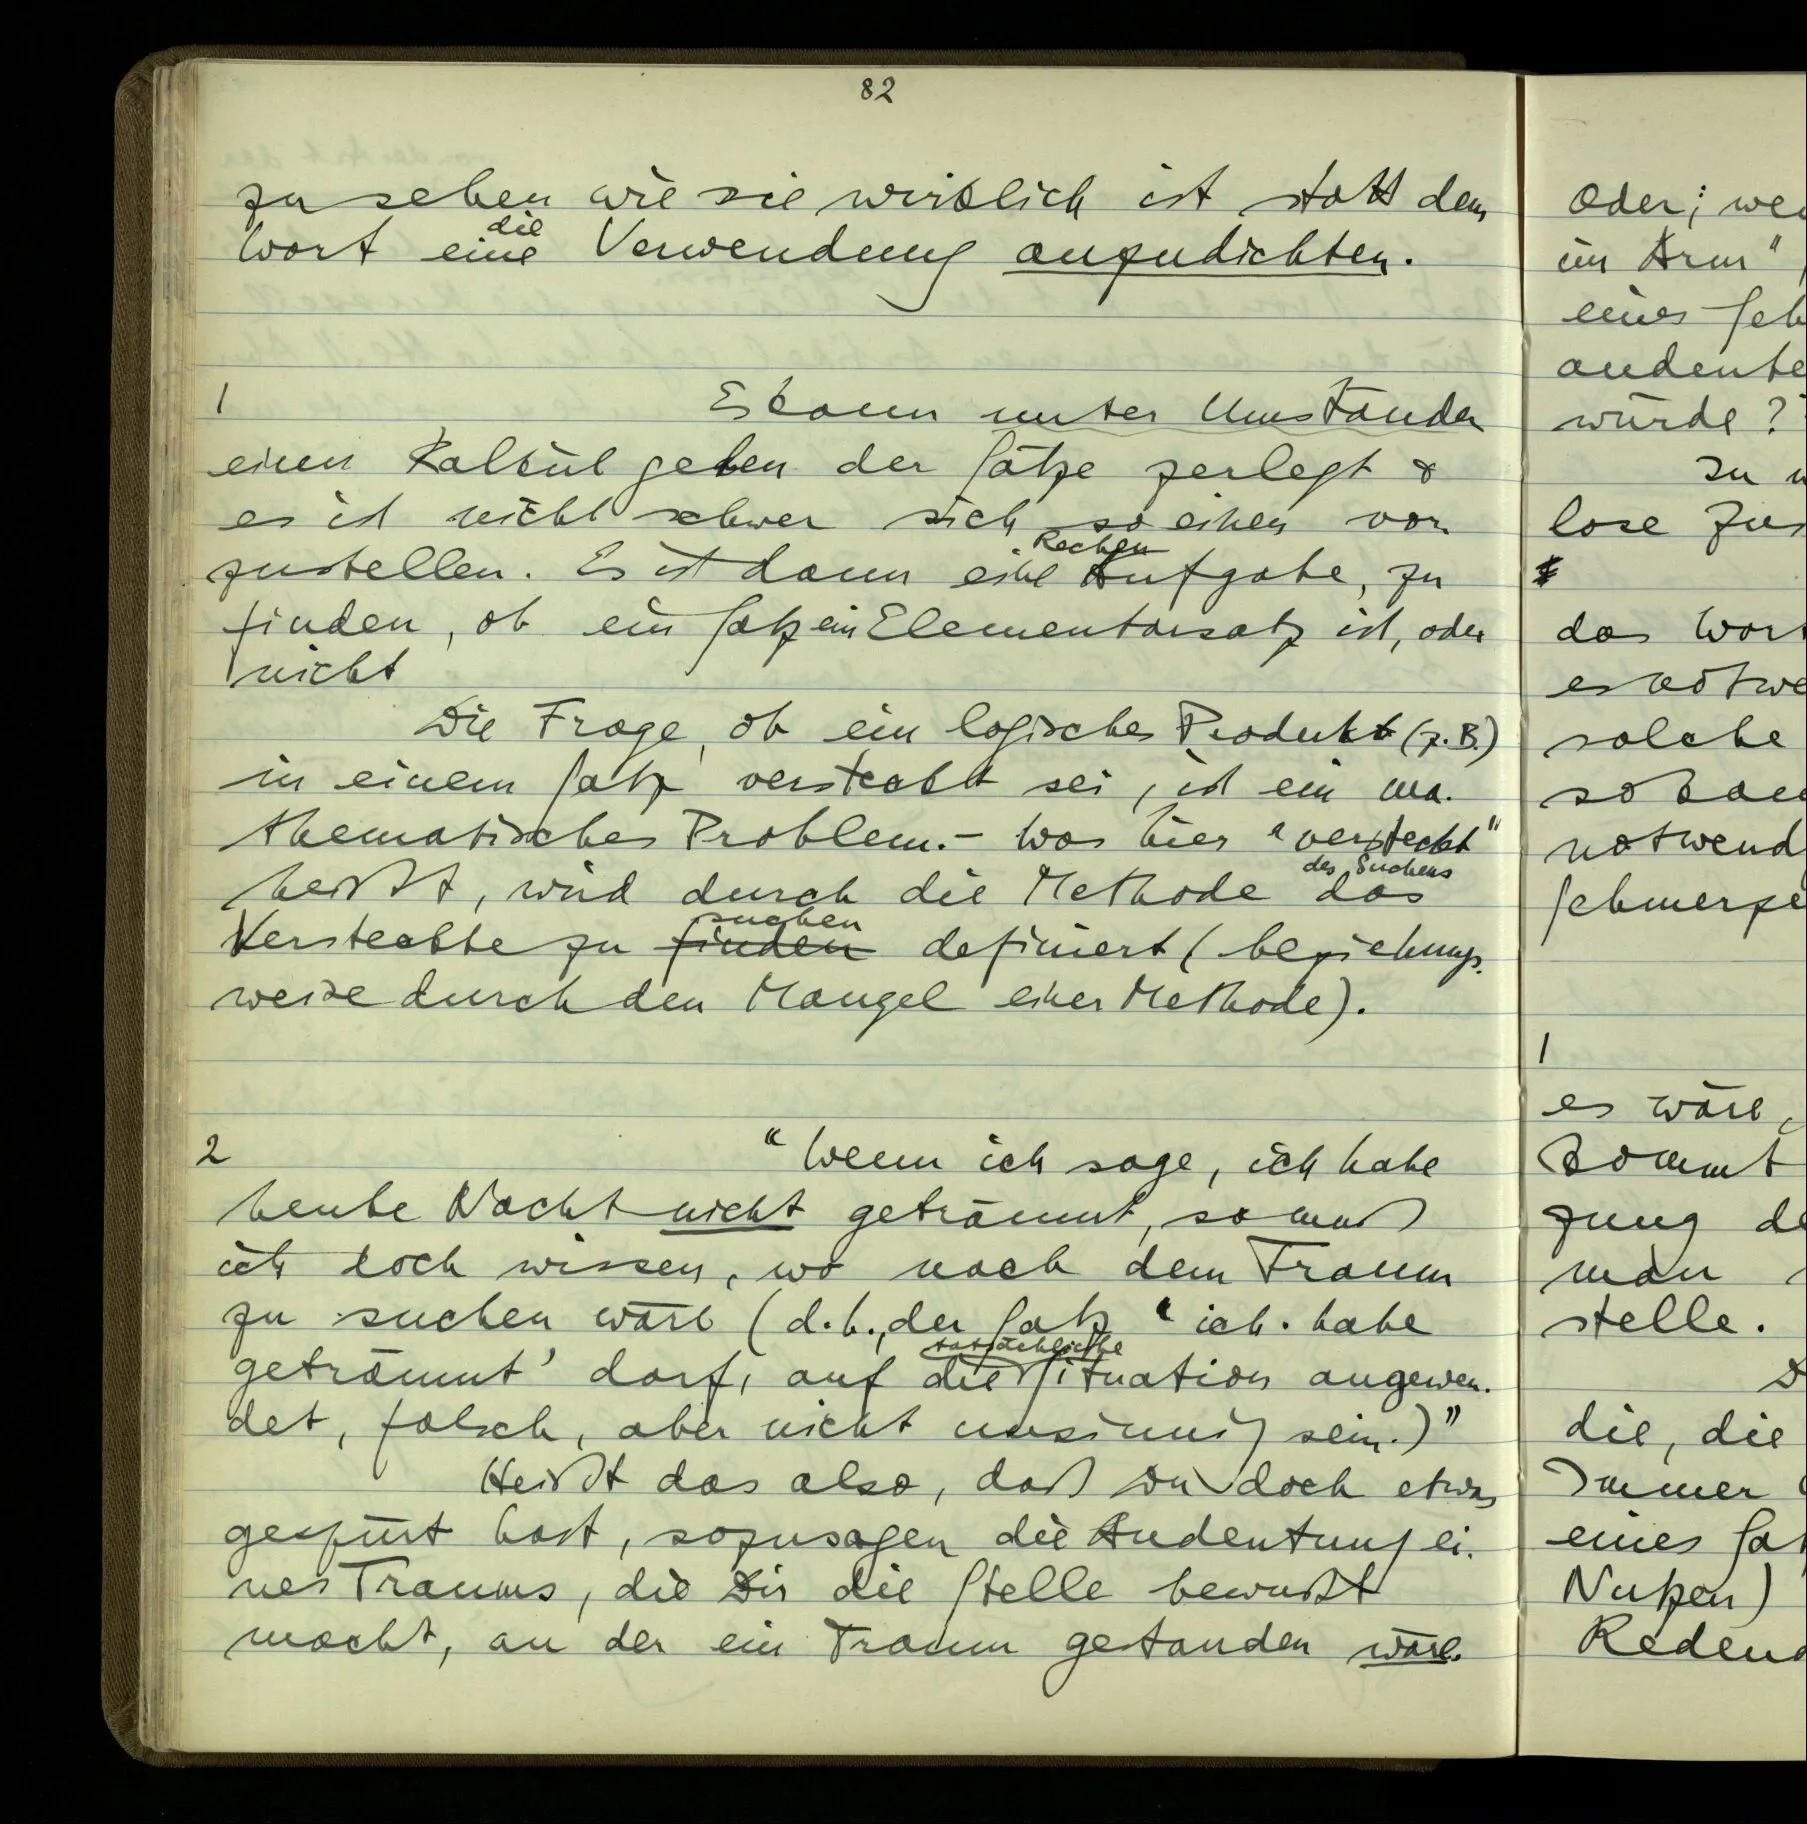 82
zu sehen wie sie wirklich ist statt dem
die
Wort eine Verwendung anzudichten.
1
Es kann unter Umständen
einen Kalkül geben der Sätze zerlegt &
es ist nicht schwer sich so einen vor
zustellen. Es ist dann eine Aufgabe, zu
Rechen
finden, ob ein Satz ein Elementarsatz ist, oder
nicht
Die Frage, ob ein logisches Produkt (z.B.)
in einem Satz versteckt sei, ist ein ma-
thematisches Problem. – Was hier "versteckt"
heißt, wird durch die Methode das
des Suchens
Versteckte zu finden definiert (beziehungs-
suchen
weise durch den Mangel einer Methode).
2
"Wenn ich sage, ich habe
heute Nacht nicht geträumt, so muß
ich doch wissen, wo nach dem Traum
zu suchen wäre (d.h., der Satz 'ich habe
geträumt' darf, auf die Situation angewen-
tatsächliche
det, falsch, aber nicht unsinnig sein.)"
Heißt das also, daß Du doch etwas
gespürt hast, sozusagen die Andeutung ei-
nes Traums, die Dir die Stelle bewußt
macht, an der ein Traum gestanden wäre.
Oder; wen
im Arm"
eines
andeute
würde?
lose
das Wort
es notwe
solche
so kan
notwend
Schmerze
1
es wäre,
kommt
zung de
man
stelle.
die, die
Immer
eines
Nutzen)